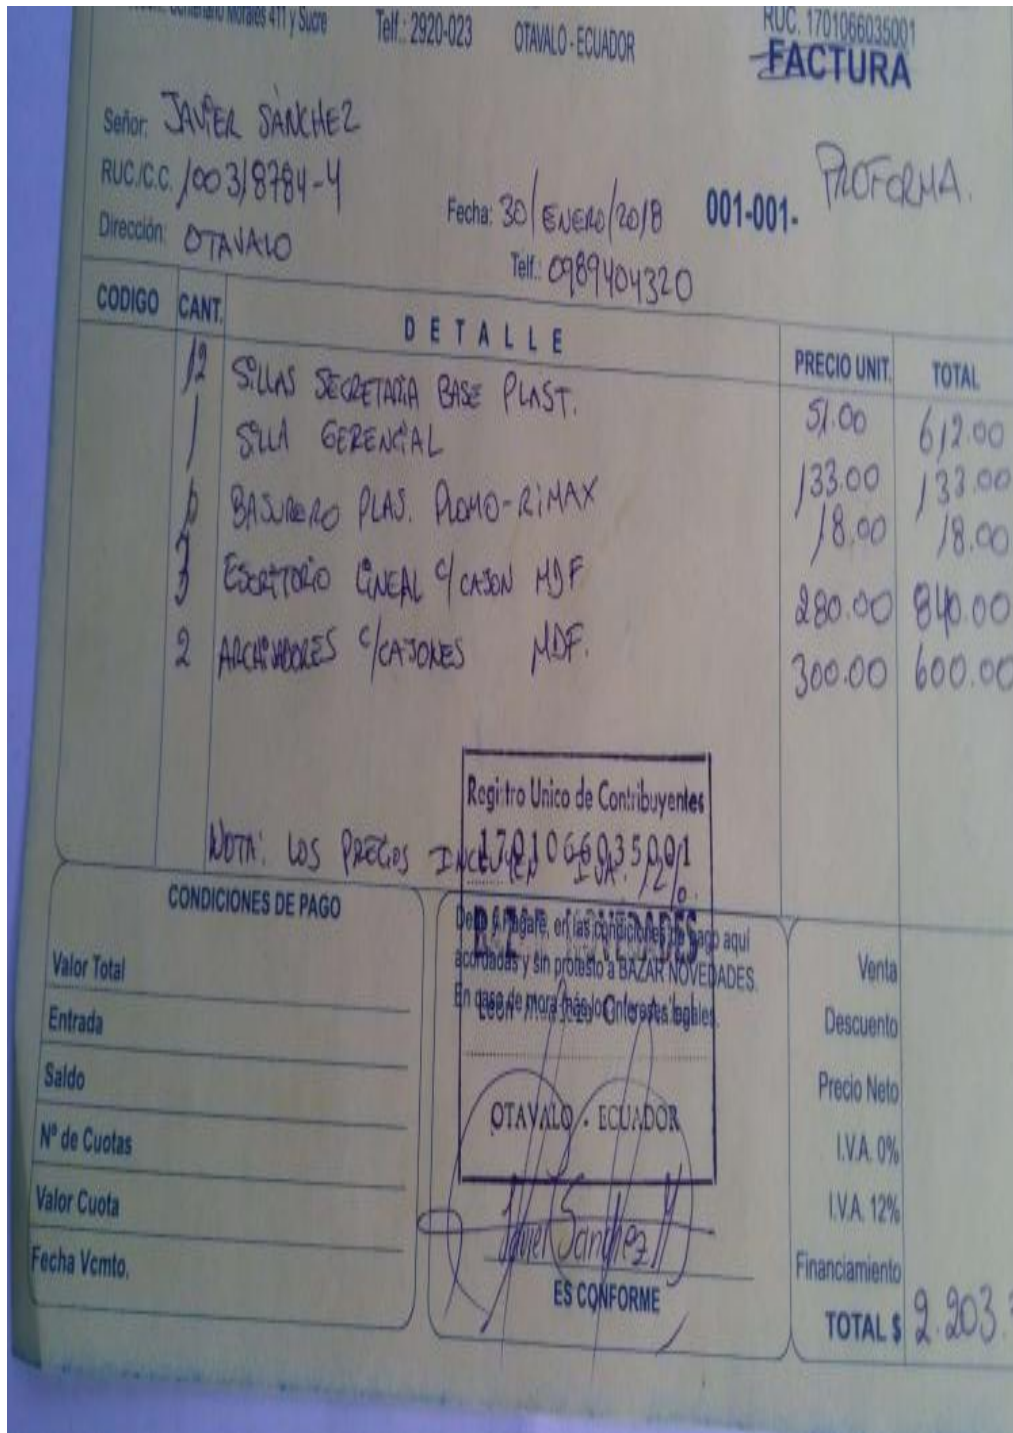 Morales 411 y Sucre Telf.: 2920-023 OTAVALO - ECUADOR RUC. 1701066035001
FACTURA
Señor: JAVIER SÁNCHEZ
PROFORMA.
RUC./C.C. 100318784-4
Fecha: 30/ENERO/2018 001-001-
Dirección: OTAVALO
Telf.: 0989404320
CODIGO CANT. DETALLE PRECIO UNIT. TOTAL
12 SILLAS SECRETARIA BASE PLAST. 51.00 612.00
1 SILLA GERENCIAL 133.00 133.00
BASURERO PLAS. PLOMO-RIMAX 18.00 18.00
3 ESCRITORIO LINEAL C/CAJON MDF 280.00 840.00
2 ARCHIVADORES C/CAJONES MDF. 300.00 600.00
Registro Unico de Contribuyentes
1701066035001
NOTA: LOS PRECIOS INCLUYEN IVA. 12%.
CONDICIONES DE PAGO
Valor Total
Entrada
Saldo
Nº de Cuotas
Valor Cuota
Fecha Vcmto.
Debo y Pagaré, en las condiciones de pago aquí
acordadas y sin protesto a BAZAR NOVEDADES.
En caso de mora más los intereses legales.
OTAVALO - ECUADOR
Javier Sánchez M
ES CONFORME
Venta
Descuento
Precio Neto
I.V.A. 0%
I.V.A. 12%
Financiamiento
TOTAL $ 2.203.